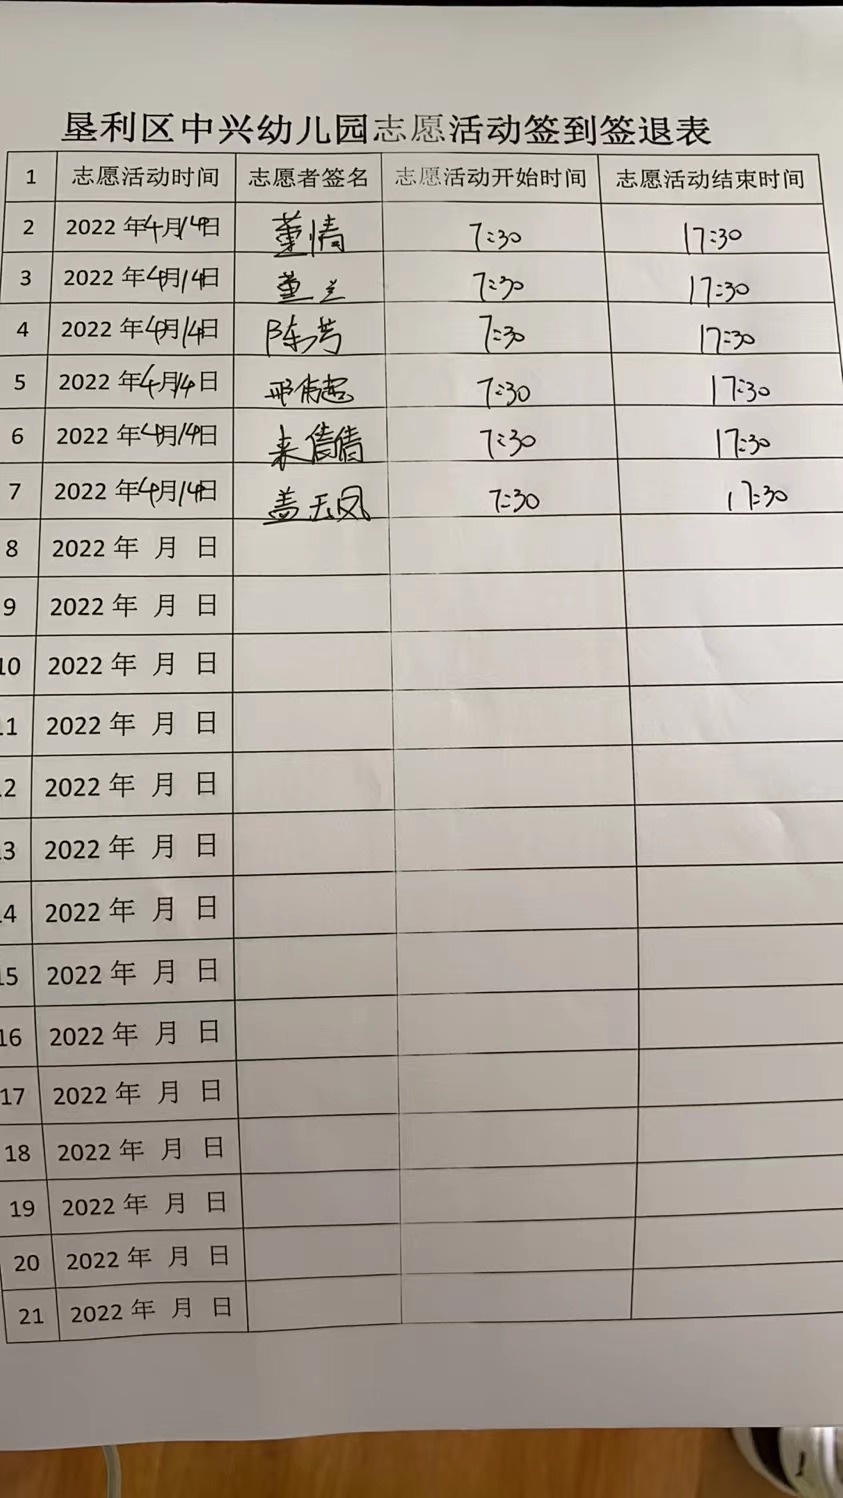 垦利区中兴幼儿园志愿活动签到签退表
1 志愿活动时间 志愿者签名 志愿活动开始时间 志愿活动结束时间
2 2022 年4月14日 董情 7:30 17:30
3 2022 年4月14日 董兰 7:30 17:30
4 2022 年4月14日 陈芳 7:30 17:30
5 2022 年4月14日 7:30 17:30
6 2022 年4月14日 来倩倩 7:30 17:30
7 2022 年4月14日 盖玉凤 7:30 17:30
8 2022 年 月 日
9 2022 年 月 日
10 2022 年 月 日
11 2022 年 月 日
12 2022 年 月 日
13 2022 年 月 日
14 2022 年 月 日
15 2022 年 月 日
16 2022 年 月 日
17 2022 年 月 日
18 2022 年 月 日
19 2022 年 月 日
20 2022 年 月 日
21 2022 年 月 日